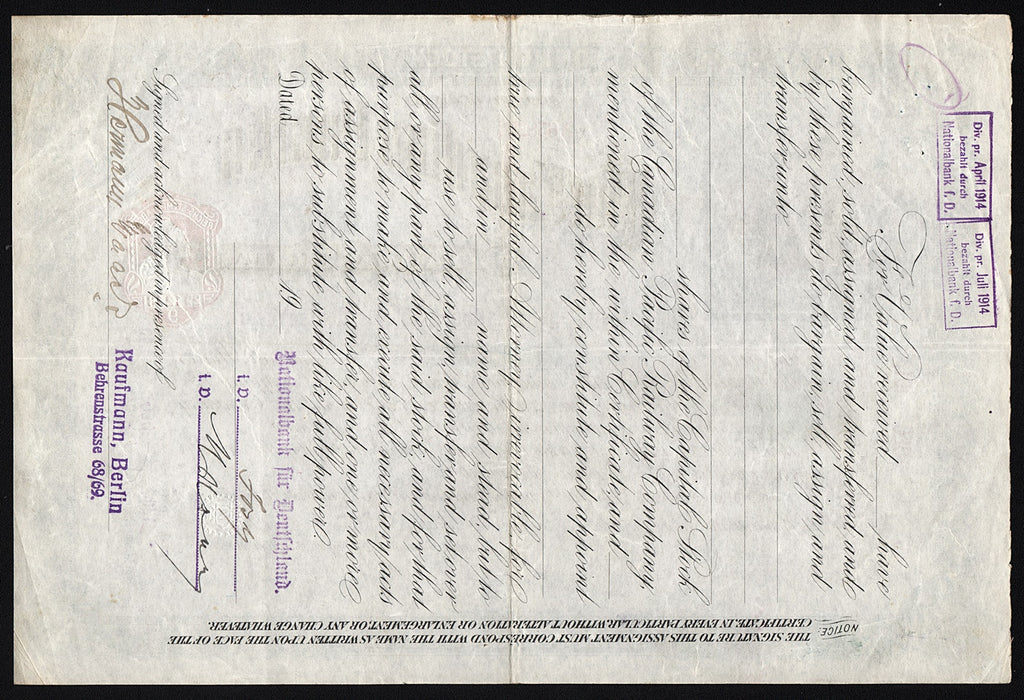 Div. pr. April 1914
bezahlt durch
Nationalbank f. D.
Div. pr. Juli 1914
bezahlt durch
Nationalbank f. D.
For Value Received have
bargained, sold, assigned and transferred, and
by these presents do bargain, sell, assign and
transfer unto
shares of the Capital Stock
of the Canadian Pacific Railway Company
mentioned in the within Certificate, and
do hereby constitute and appoint
true and lawful Attorney, irrevocable, for
and in name and stead, but to
use, to sell, assign, transfer and set over
all or any part of the said stock, and for that
purpose to make and execute all necessary acts
of assignment and transfer, and one or more
persons to substitute with like full power.
Dated 19
Nationalbank für Deutschland.
i. V.
i. V.
Signed and acknowledged in presence of
Kaufmann, Berlin
Behrenstrasse 68/69.
NOTICE:
THE SIGNATURE TO THIS ASSIGNMENT MUST CORRESPOND WITH THE NAME AS WRITTEN UPON THE FACE OF THE
CERTIFICATE, IN EVERY PARTICULAR WITHOUT ALTERATION OR ENLARGEMENT OR ANY CHANGE WHATEVER.